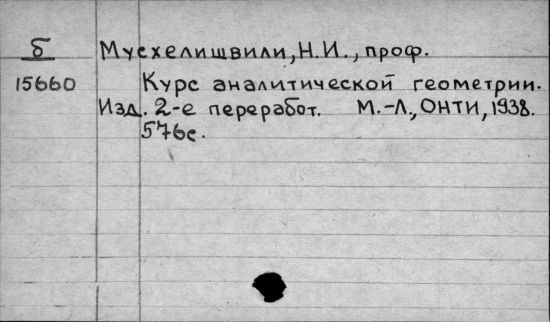 Б
15660
Мусхелишвили, Н.И., проф.
Курс аналитической геометрии.
Изд. 2-е переработ. М.-Л., ОНТИ, 1938.
576с.